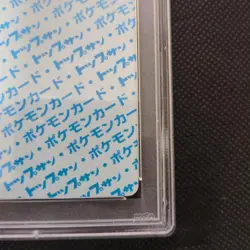 ポケモンカード
トップサン・ポケモンカード・
ポケモンカード・トップサン
トップサン・ポケモンカード
ポケモンカード・トップサン
トップサン・ポケモン